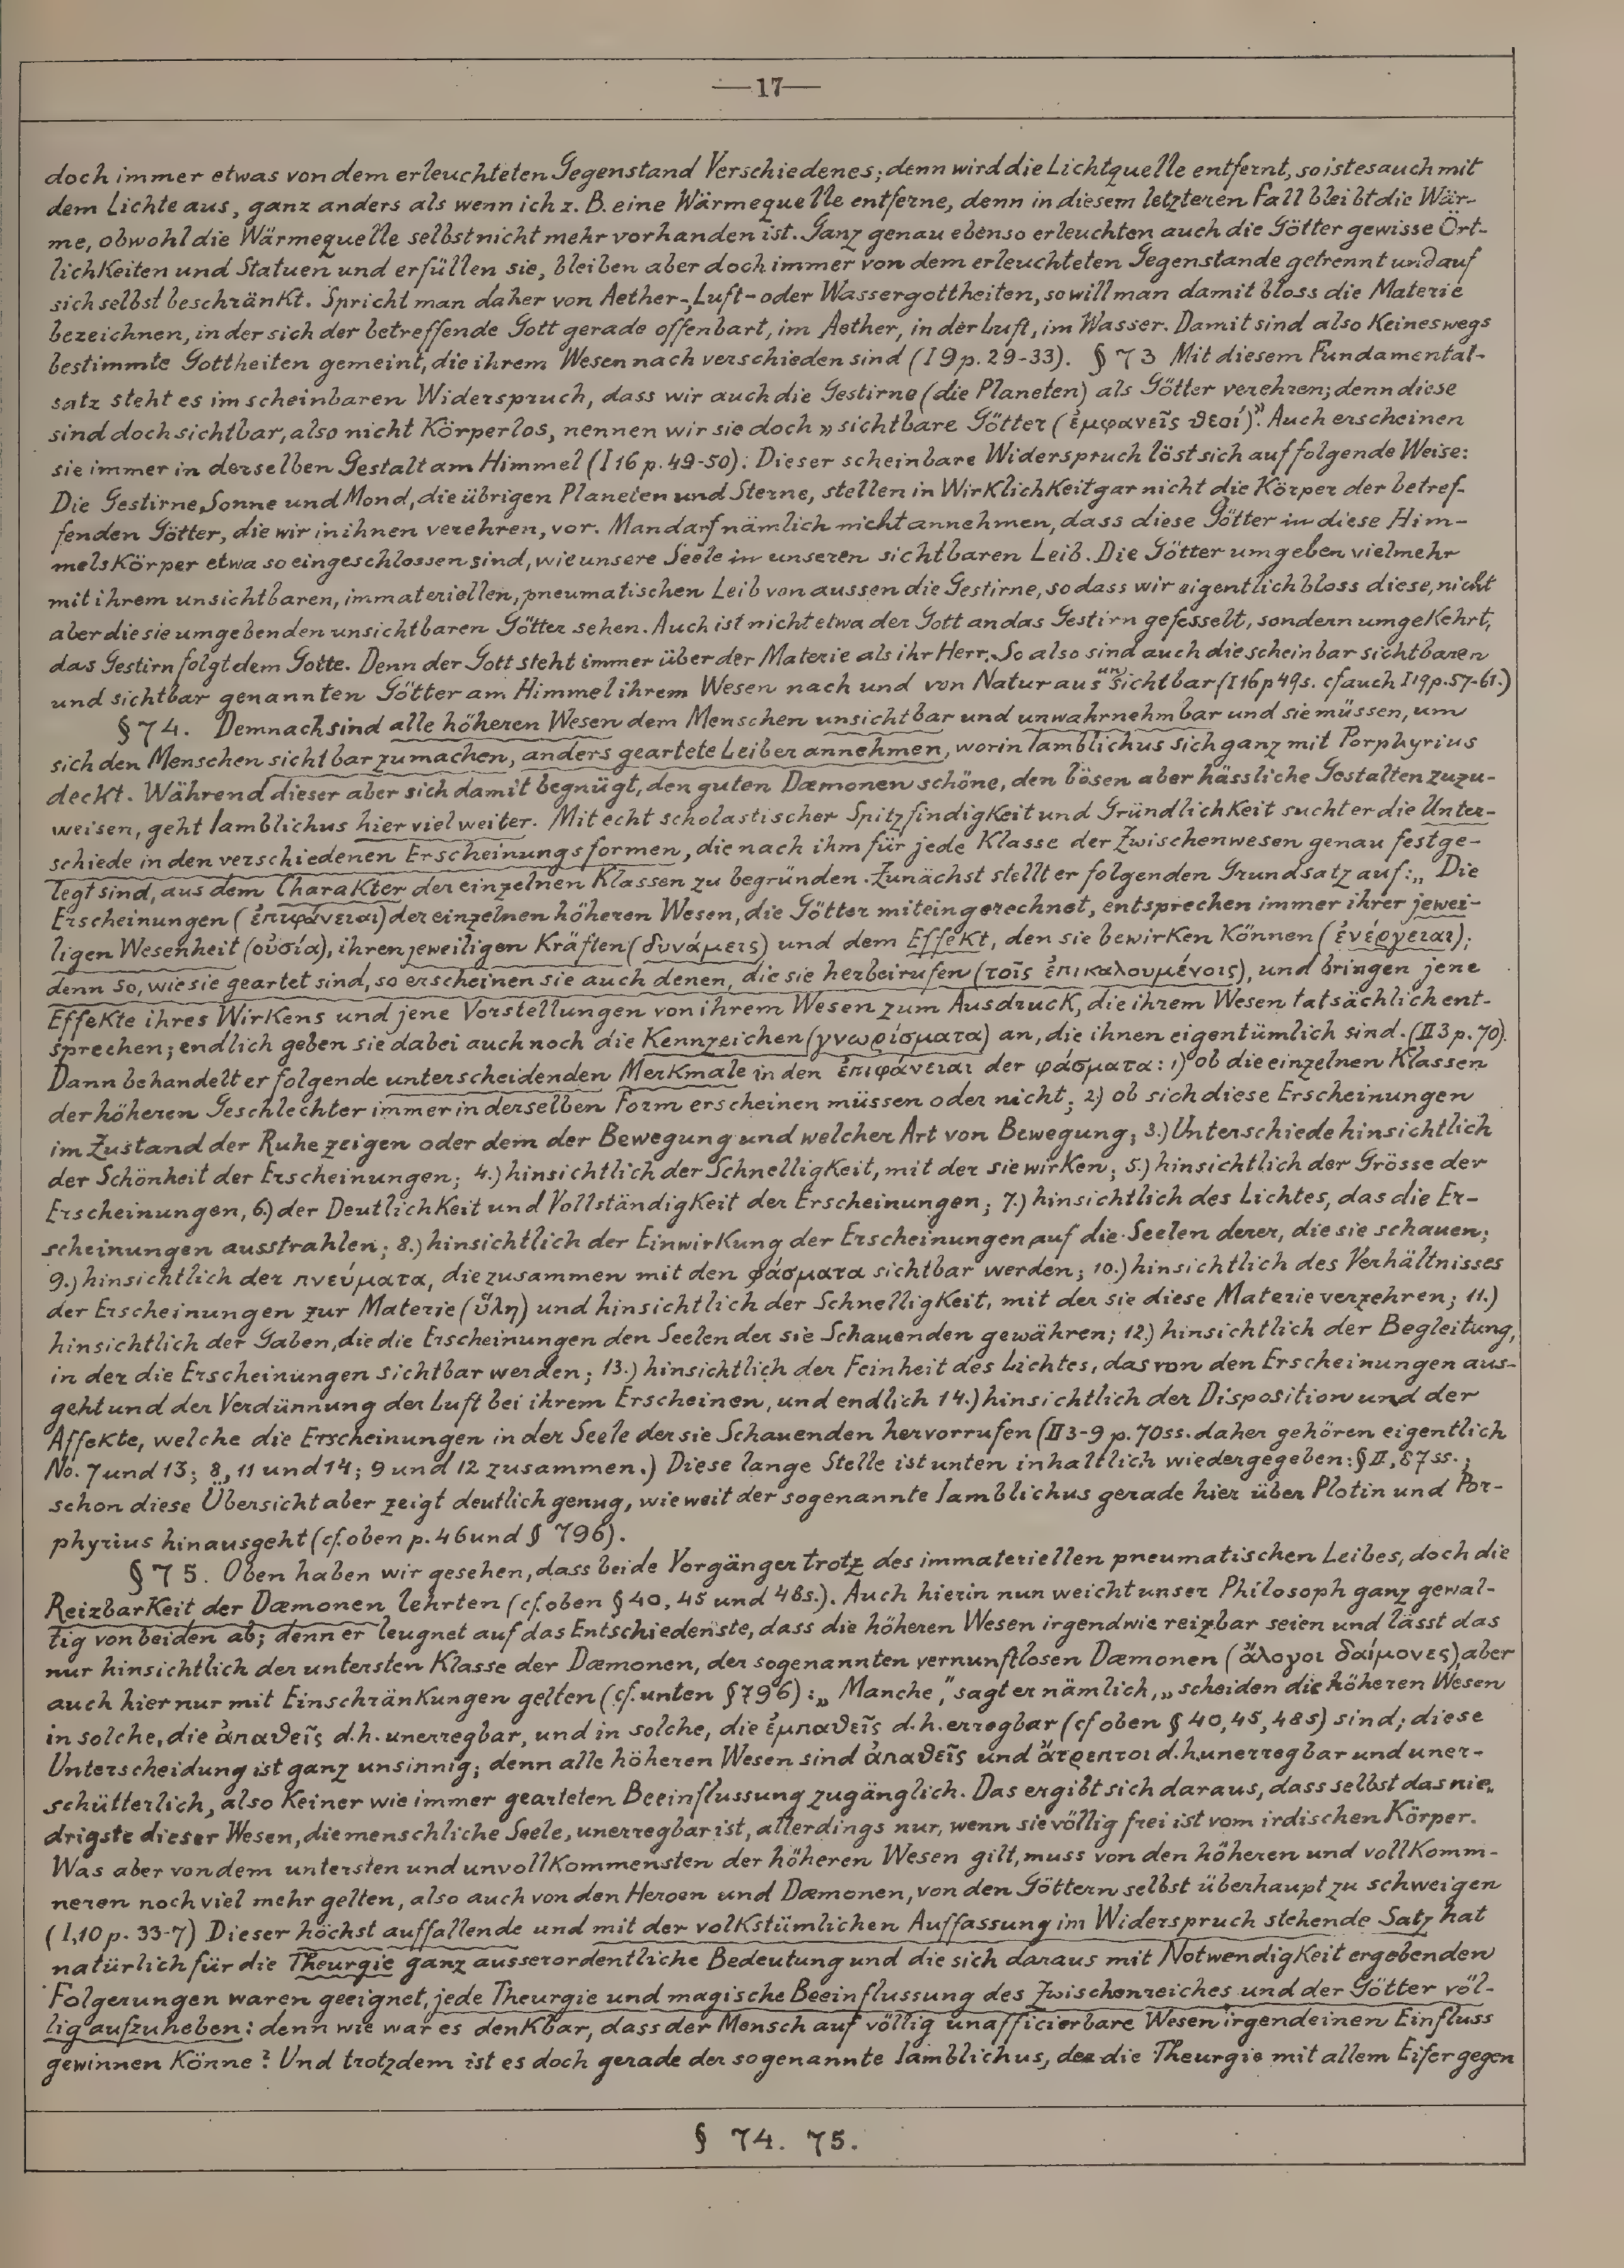 —17—
doch immer etwas von dem erleuchteten Gegenstand Verschiedenes; denn wird die Lichtquelle entfernt, so ist es auch mit
dem Lichte aus, ganz anders als wenn ich z. B. eine Wärmequelle entferne, denn in diesem letzteren Fall bleibt die Wär-
me, obwohl die Wärmequelle selbst nicht mehr vorhanden ist. Ganz genau ebenso erleuchten auch die Götter gewisse Ört-
lichkeiten und Statuen und erfüllen sie, bleiben aber doch immer von dem erleuchteten Gegenstande getrennt und auf
sich selbst beschränkt. Spricht man daher von Aether-, Luft- oder Wassergottheiten, so will man damit bloss die Materie
bezeichnen, in der sich der betreffende Gott gerade offenbart, im Aether, in der Luft, im Wasser. Damit sind also keineswegs
bestimmte Gottheiten gemeint, die ihrem Wesen nach verschieden sind (I 9 p. 29-33). § 73 Mit diesem Fundamental-
satz steht es im scheinbaren Widerspruch, dass wir auch die Gestirne (die Planeten) als Götter verehren; denn diese
sind doch sichtbar, also nicht körperlos, nennen wir sie doch „sichtbare Götter (ἐμφανεῖς θεοί)”. Auch erscheinen
sie immer in derselben Gestalt am Himmel (I 16 p. 49-50). Dieser scheinbare Widerspruch löst sich auf folgende Weise:
Die Gestirne, Sonne und Mond, die übrigen Planeten und Sterne, stellen in Wirklichkeit gar nicht die Körper der betref-
fenden Götter, die wir in ihnen verehren, vor. Man darf nämlich nicht annehmen, dass diese Götter in diese Him-
melskörper etwa so eingeschlossen sind, wie unsere Seele in unseren sichtbaren Leib. Die Götter umgeben vielmehr
mit ihrem unsichtbaren, immateriellen, pneumatischen Leib von aussen die Gestirne, sodass wir eigentlich bloss diese, nicht
aber die sie umgebenden unsichtbaren Götter sehen. Auch ist nicht etwa der Gott an das Gestirn gefesselt, sondern umgekehrt,
das Gestirn folgt dem Gotte. Denn der Gott steht immer über der Materie als ihr Herr. So also sind auch die scheinbar sichtbaren
und sichtbar genannten Götter am Himmel ihrem Wesen nach und von Natur aus "un"sichtbar (I 16 p 49 s. cf auch I 19 p. 57-61.)
§ 74. Demnach sind alle höheren Wesen dem Menschen unsichtbar und unwahrnehmbar und sie müssen, um
sich den Menschen sichtbar zu machen, anders geartete Leiber annehmen, worin Iamblichus sich ganz mit Porphyrius
deckt. Während dieser aber sich damit begnügt, den guten Dæmonen schöne, den bösen aber hässliche Gestalten zuzu-
weisen, geht Iamblichus hier viel weiter. Mit echt scholastischer Spitzfindigkeit und Gründlichkeit sucht er die Unter-
schiede in den verschiedenen Erscheinungsformen, die nach ihm für jede Klasse der Zwischenwesen genau festge-
legt sind, aus dem Charakter der einzelnen Klassen zu begründen. Zunächst stellt er folgenden Grundsatz auf: „Die
Erscheinungen (ἐπιφάνειαι) der einzelnen höheren Wesen, die Götter miteingerechnet, entsprechen immer ihrer jewei-
ligen Wesenheit (οὐσία), ihren jeweiligen Kräften (δυνάμεις) und dem Effekt, den sie bewirken können (ἐνέργειαι);
denn so, wie sie geartet sind, so erscheinen sie auch denen, die sie herbeirufen (τοῖς ἐπικαλουμένοις), und bringen jene
Effekte ihres Wirkens und jene Vorstellungen von ihrem Wesen zum Ausdruck, die ihrem Wesen tatsächlich ent-
sprechen; endlich geben sie dabei auch noch die Kennzeichen (γνωρίσματα) an, die ihnen eigentümlich sind. (II 3 p. 70).
Dann behandelt er folgende unterscheidenden Merkmale in den ἐπιφάνειαι der φάσματα: 1) ob die einzelnen Klassen
der höheren Geschlechter immer in derselben Form erscheinen müssen oder nicht; 2.) ob sich diese Erscheinungen
im Zustand der Ruhe zeigen oder dem der Bewegung und welcher Art von Bewegung; 3.) Unterschiede hinsichtlich
der Schönheit der Erscheinungen; 4.) hinsichtlich der Schnelligkeit, mit der sie wirken; 5.) hinsichtlich der Grösse der
Erscheinungen, 6.) der Deutlichkeit und Vollständigkeit der Erscheinungen; 7.) hinsichtlich des Lichtes, das die Er-
scheinungen ausstrahlen; 8.) hinsichtlich der Einwirkung der Erscheinungen auf die Seelen derer, die sie schauen;
9.) hinsichtlich der πνεύματα, die zusammen mit den φάσματα sichtbar werden; 10.) hinsichtlich des Verhältnisses
der Erscheinungen zur Materie (ὕλη) und hinsichtlich der Schnelligkeit, mit der sie diese Materie verzehren; 11.)
hinsichtlich der Gaben, die die Erscheinungen den Seelen der sie Schauenden gewähren; 12.) hinsichtlich der Begleitung,
in der die Erscheinungen sichtbar werden; 13.) hinsichtlich der Feinheit des Lichtes, das von den Erscheinungen aus-
geht und der Verdünnung der Luft bei ihrem Erscheinen, und endlich 14.) hinsichtlich der Disposition und der
Affekte, welche die Erscheinungen in der Seele der sie Schauenden hervorrufen (II 3-9 p. 70 ss. daher gehören eigentlich
No. 7 und 13; 8, 11 und 14; 9 und 12 zusammen.) Diese lange Stelle ist unten inhaltlich wiedergegeben: § II, 87 ss.;
schon diese Übersicht aber zeigt deutlich genug, wie weit der sogenannte Iamblichus gerade hier über Plotin und Por-
phyrius hinausgeht (cf. oben p. 46 und § 796).
§ 75. Oben haben wir gesehen, dass beide Vorgänger trotz des immateriellen pneumatischen Leibes, doch die
Reizbarkeit der Dæmonen lehrten (cf. oben § 40, 45 und 48 s.). Auch hierin nun weicht unser Philosoph ganz gewal-
tig von beiden ab; denn er leugnet auf das Entschiedenste, dass die höheren Wesen irgendwie reizbar seien und lässt das
nur hinsichtlich der untersten Klasse der Dæmonen, der sogenannten vernunftlosen Dæmonen (ἄλογοι δαίμονες), aber
auch hier nur mit Einschränkungen gelten (cf. unten § 796): „Manche," sagt er nämlich, „scheiden die höheren Wesen
in solche, die ἀπαθεῖς d. h. unerregbar, und in solche, die ἐμπαθεῖς d. h. erregbar (cf oben § 40, 45, 48 s) sind; diese
Unterscheidung ist ganz unsinnig; denn alle höheren Wesen sind ἀπαθεῖς und ἄτρεπτοι d. h. unerregbar und uner-
schütterlich, also keiner wie immer gearteten Beeinflussung zugänglich. Das ergibt sich daraus, dass selbst das nie-
drigste dieser Wesen, die menschliche Seele, unerregbar ist, allerdings nur, wenn sie völlig frei ist vom irdischen Körper.
Was aber von dem untersten und unvollkommensten der höheren Wesen gilt, muss von den höheren und vollkomm-
neren noch viel mehr gelten, also auch von den Heroen und Dæmonen, von den Göttern selbst überhaupt zu schweigen
(I, 10 p. 33-7) Dieser höchst auffallende und mit der volkstümlichen Auffassung im Widerspruch stehende Satz hat
natürlich für die Theurgie ganz ausserordentliche Bedeutung und die sich daraus mit Notwendigkeit ergebenden
Folgerungen waren geeignet, jede Theurgie und magische Beeinflussung des Zwischenreiches und der Götter völ-
lig aufzuheben: denn wie war es denkbar, dass der Mensch auf völlig unafficierbare Wesen irgendeinen Einfluss
gewinnen könne? Und trotzdem ist es doch gerade der sogenannte Iamblichus, der die Theurgie mit allem Eifer gegen
§ 74. 75.